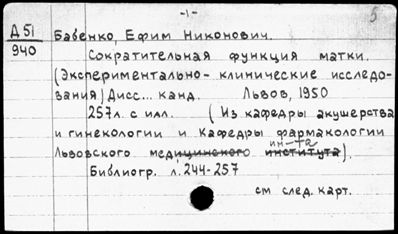 -1-
5
Д51 Бабенко, Ефим Никонович.
940
Сократительная функция матки.
(Экспериментально-клинические исследо-
вания) Дисс... канд. Львов, 1950
257л. с илл. (Из кафедры акушерства
и гинекологии и Кафедры фармакологии
ин-та
Львовского медицинского института).
Библиогр. л. 244-257
см след. карт.